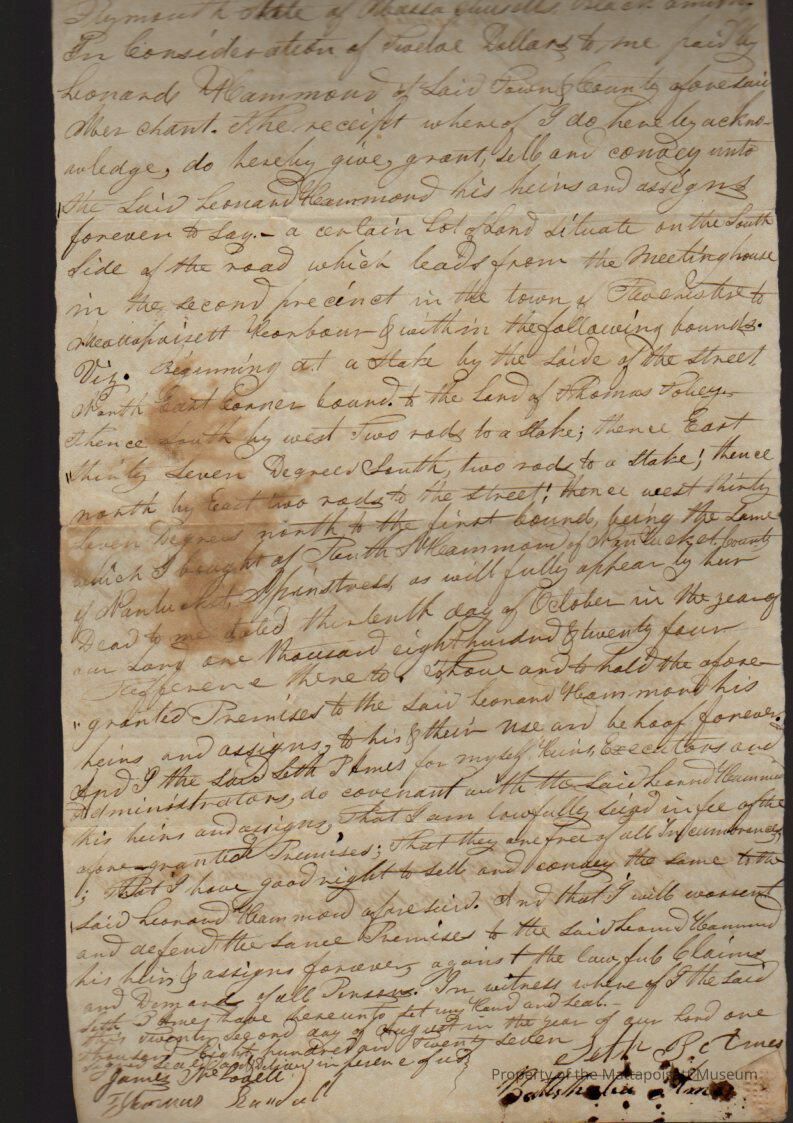 Plymouth State of Massachusetts Black
In Consideration of Twelve Dollars to me paid by
Leonard Hammond of Said Town & County aforesaid
Merchant. The receipt whereof I do hereby ackno-
wledge, do hereby give, grant, sell and convey unto
the Said Leonard Hammond his heirs and assigns
forever to Say.- a certain Lot of Land situate on the South
Side of the road which leads from the Meetinghouse
in the second precinct in the town of to
Mattapoisett Harbour & within the following bounds.
Viz. Beginning at a Stake by the Saide of the Street
North East Corner bound to the Land of Thomas
thence South by west Two rods to a Stake; thence East
thirty Seven Degrees South, two rods to a Stake; thence
north by East two rods to the Street; thence west thirty
Seven Degrees north to the first bound, being the Same
which I bought of Ruth Hammond of Nantucket County
of Nantucket, Spinstress, as will fully appear by her
Dead to me dated thirteenth day of October in the year of
our Lord one thousand eight hundred & twenty four
Refference there to. To have and to hold the afore-
granted Premises to the Said Leonard Hammond his
heirs and assigns, to his & their use and behoof forever.
And I the Said Seth B Ames for myself Heirs, Executors and
Administrators, do covenant with the Said Leonard Hammond
his heirs and assigns, That I am lawfully seizd in fee of the
afore-granted Premises; That they are free of all Incumbrances
; That I have good right to sell and convey the same to the
Said Leonard Hammond aforesaid. And that I will warrent
and defend the Same Premises to the Said Leonard Hammond
his heirs & assigns forever, against the lawful Claims
and Demands of all Persons. In witness where of I the Said
Seth B Ames have hereunto Set my Hand and Seal.-
this Twenty Second day of August in the year of our Lord one
thousand Eight hundred and Twenty Seven
Signed Sealed and Deliverd in presence of us
Seth B Ames
James
Ames
Property of the Mattapoisett Museum